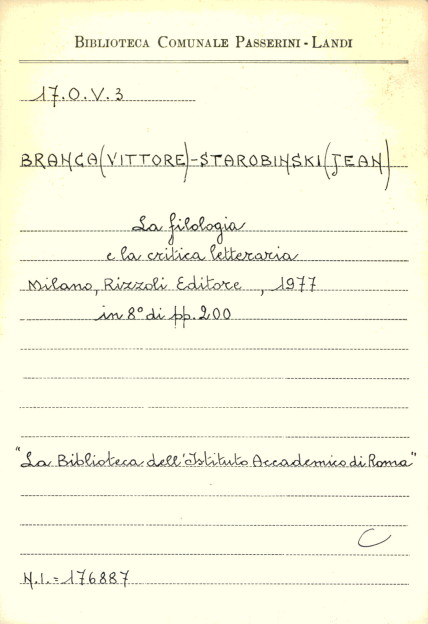 BIBLIOTECA COMUNALE PASSERINI - LANDI
17.O.V.3
BRANCA(VITTORE)-STAROBINSKI(JEAN)
La filologia
e la critica letteraria
Milano, Rizzoli Editore , 1977
in 8° di pp. 200
"La Biblioteca dell'Istituto Accademico di Roma"
C
N.I.= 176887